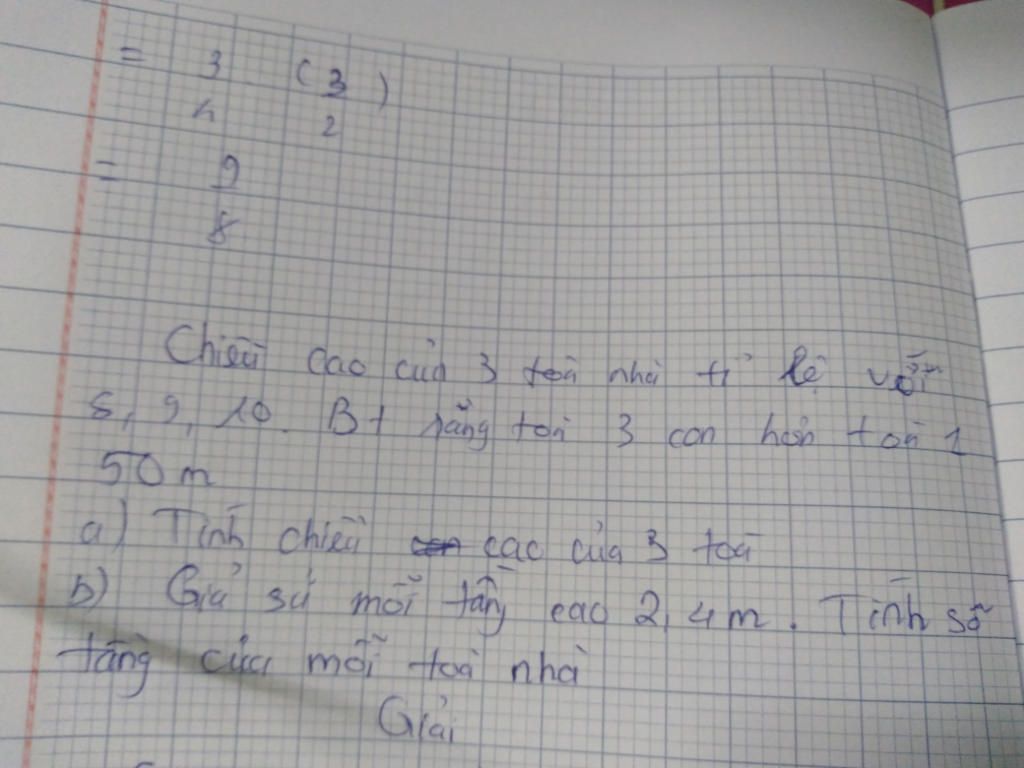 = 3 ( 3 )
4 2
= 9
8
Chiều cao của 3 toà nhà tỉ lệ với
8, 9, 10. Bt rằng toà 3 con hơn toà 1
50 m
a) Tính chiều cao của 3 toà
b) Giả sử mỗi tầng cao 2,4m. Tính số
tầng của mỗi toà nhà
Giải